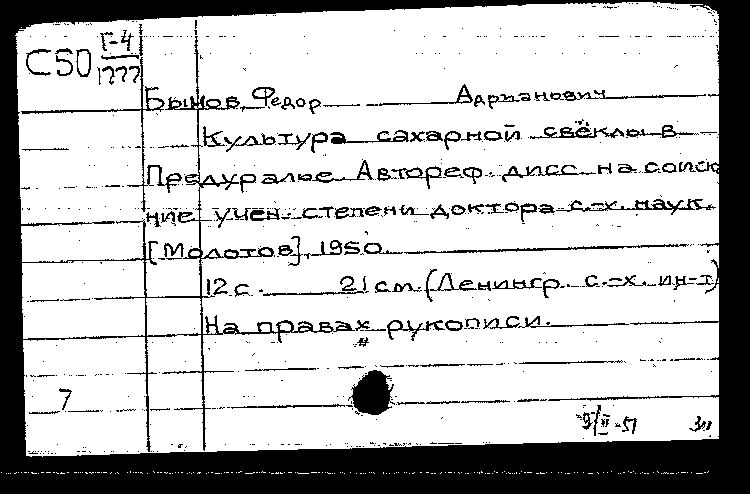 С50 Г-4
1777
Бымов, Федор Адрианович
Культура сахарной свёклы в
Предуралье. Автореф. дисс. на соиск
ние учен. степени доктора с.-х. наук.
[Молотов], 1950.
12 с. 21 см. (Ленингр. с.-х. ин-т)
На правах рукописи.
7
-51